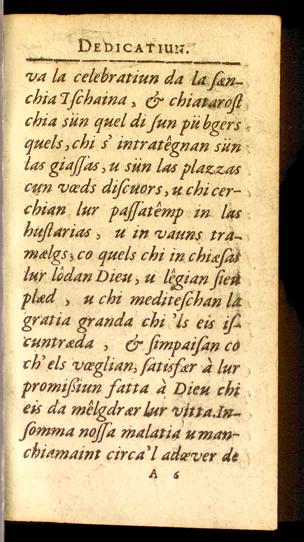 DEDICATIUN.
va la celebratiun da la ſæn-
chia Tſchaina, & chiataroſt
chia ſün quel di ſun pü bgers
quels, chi s' intratêgnan ſün
las giaſſas, u ſün las plazzas
cun væds diſcuors, u chi cer-
chian lur paſſatêmp in las
huſtarias, u in vauns tra-
mælgs, co quels chi in chiæſas
lur lôdan Dieu, u lêgian ſieu
plæd, u chi mediteſchan la
gratia granda chi 'ls eis iſ-
cuntræda, & ſimpaiſan co
ch' els vœglian, ſatisfær à lur
promiſſiun fatta à Dieu chi
eis da mêlgdrær lur vitta. In-
ſomma noſſa malatia u man-
chiamaint circa 'l adæver de
A 6